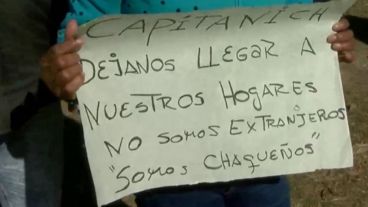 CAPITANICH
DEJANOS LLEGAR A
NUESTROS HOGARES
NO SOMOS EXTRANJEROS
"SOMOS CHAQUEÑOS"